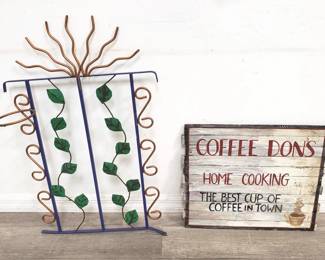 COFFEE DON'S
HOME COOKING
THE BEST CUP OF
COFFEE IN TOWN